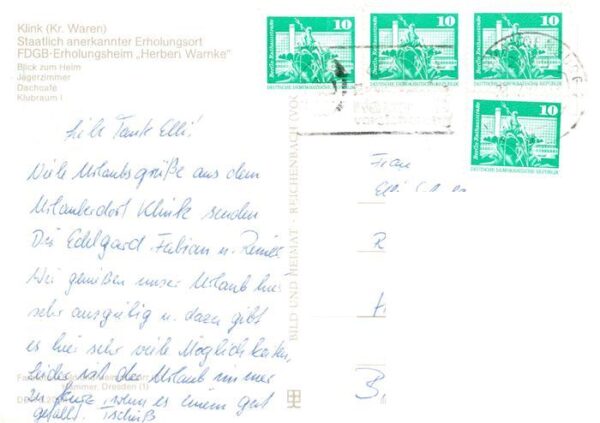 Klink (Kr. Waren)
Staatlich anerkannter Erholungsort
FDGB-Erholungsheim „Herbert Warnke“
Blick zum Heim
Jägerzimmer
Dachcafe
Klubraum I
10
Berlin, Rathausstraße
DEUTSCHE DEMOKRATISCHE REPUBLIK
10
Berlin, Rathausstraße
DEUTSCHE DEMOKRATISCHE REPUBLIK
10
Berlin, Rathausstraße
DEUTSCHE DEMOKRATISCHE REPUBLIK
10
Berlin, Rathausstraße
DEUTSCHE DEMOKRATISCHE REPUBLIK
Liebe Tante Elli!
Viele Urlaubsgrüße aus dem
Urlauberdorf Klink senden
Dir Edelgard, Fabian u.
Wir genießen unser Urlaub hier
sehr ausgiebig u. dazu gibt
es hier sehr viele Möglichkeiten,
leider ist der Urlaub immer
zu kurz, wenn es einem gut
gefällt. Tschüß
BILD UND HEIMAT · REICHENBACH (VOGTL
Frau
Dresden (1)